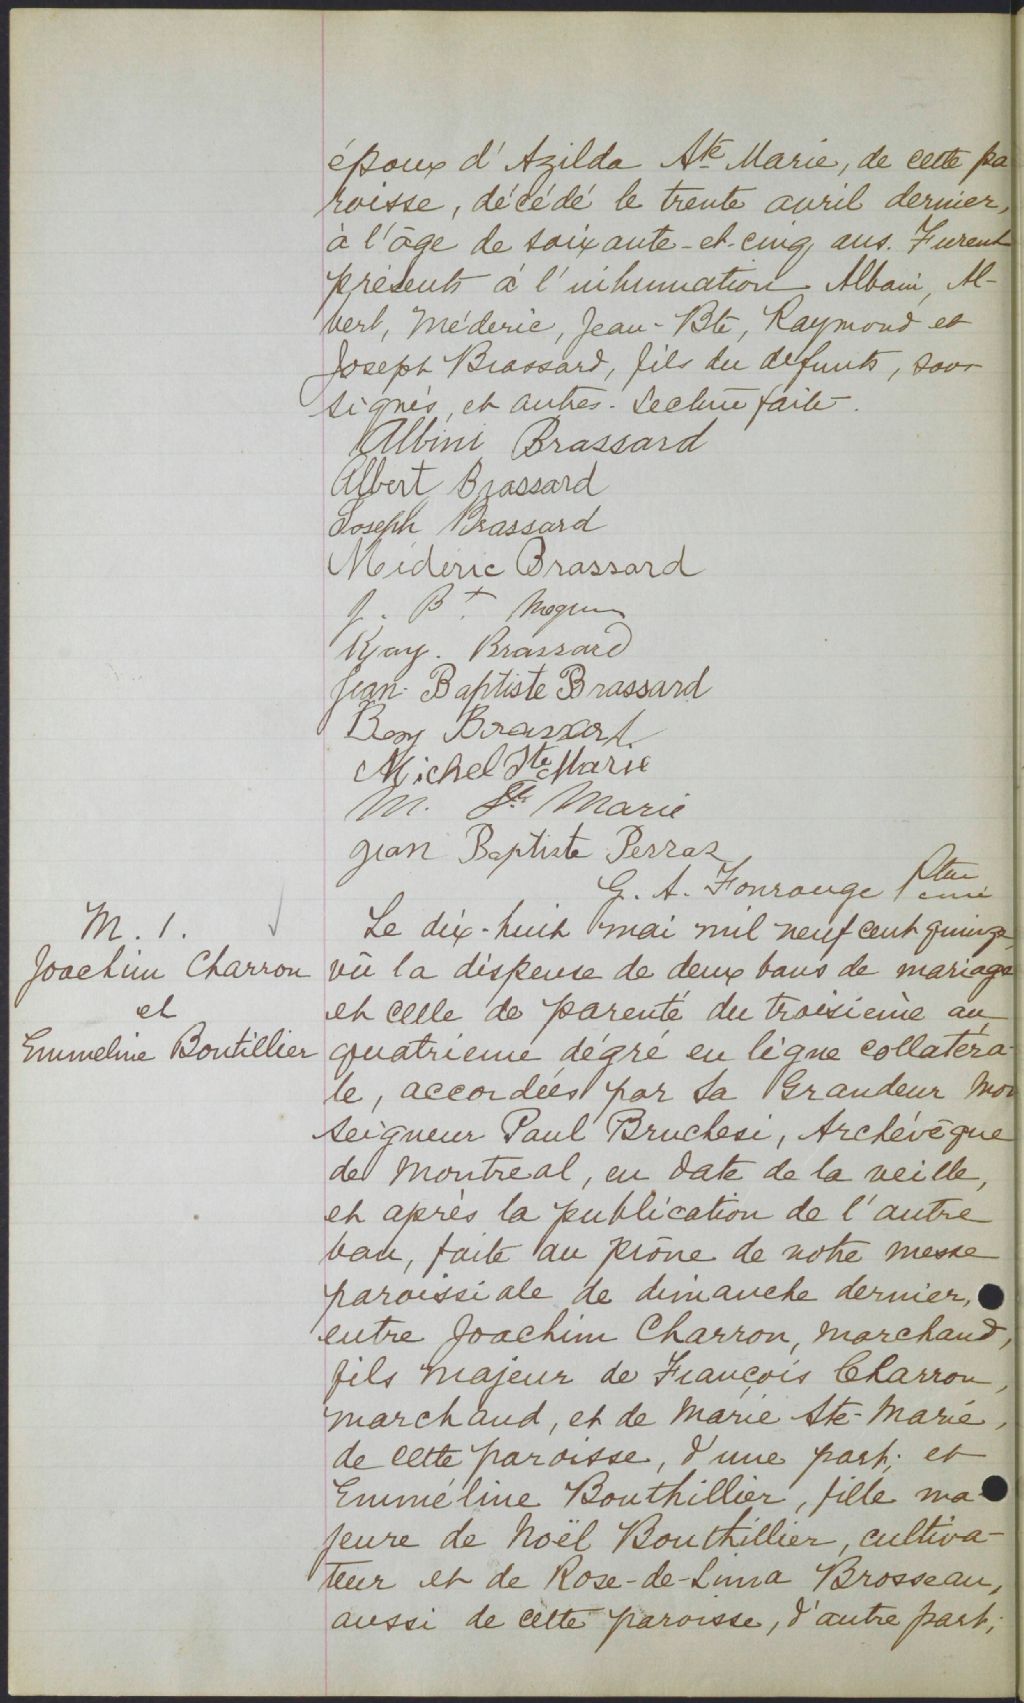 époux d'Azilda Ste Marie, de cette pa
roisse, décédé le trente avril dernier,
à l'âge de soixante-et-cinq ans. Furent
présents à l'inhumation Albani, Al-
bert, Méderic, Jean-Bte, Raymond et
Joseph Brassard, fils du defunts, sous
signés, et autres. Lecture faite.
Albini Brassard
Albert Brassard
Joseph Brassard
Médéric Brassard
J. Bt.
Ray. Brassard
Jean-Baptiste Brassard
Roy Brassard
Michel Ste Marie
M. Ste Marie
Jean Baptiste Perras
G. A. Fonrouge Ptre curé
M. 1.
Joachim Charron
et
Emmeline Boutillier
Le dix-huit mai mil neuf cent quinze,
vû la dispense de deux bans de mariage
et celle de parenté du troisième au
quatrième dégré en ligne collatéra-
le, accordées par Sa Grandeur Mon
seigneur Paul Bruchesi, Archévêque
de Montreal, en date de la veille,
et après la publication de l'autre
ban, faite au prône de notre messe
paroissiale de dimanche dernier,
entre Joachim Charron, marchand,
fils majeur de François Charron,
marchand, et de Marie Ste-Marie,
de cette paroisse, d'une part; et
Emméline Bouthillier, fille ma-
jeure de Noël Bouthillier, cultiva-
teur et de Rose-de-Lima Brosseau,
aussi de cette paroisse, d'autre part;